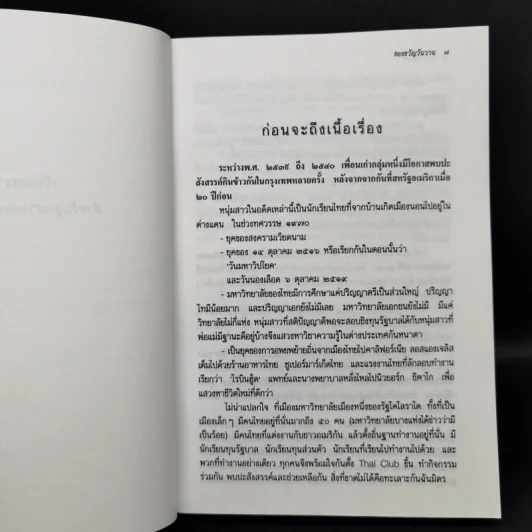 ของขวัญวันวาน ๗
ก่อนจะถึงเนื้อเรื่อง
ระหว่างพ.ศ. ๒๕๓๙ ถึง ๒๕๔๐ เพื่อนเก่ากลุ่มหนึ่งมีโอกาสพบปะ
สังสรรค์กินข้าวกันในกรุงเทพหลายครั้ง หลังจากจากกันที่สหรัฐอเมริกาเมื่อ
๒๐ ปีก่อน
หนุ่มสาวในอดีตเหล่านี้เป็นนักเรียนไทยที่จากบ้านเกิดเมืองนอนไปอยู่ใน
ต่างแดน ในช่วงทศวรรษ ๑๙๗๐
- ยุคของสงครามเวียดนาม
- ยุคของ ๑๔ ตุลาคม ๒๕๑๖ หรือเรียกกันในตอนนั้นว่า
'วันมหาวิปโยค'
และวันนองเลือด ๖ ตุลาคม ๒๕๑๙
- มหาวิทยาลัยของไทยมีการศึกษาแค่ปริญญาตรีเป็นส่วนใหญ่ ปริญญา
โทมีน้อยมาก และปริญญาเอกยังไม่มีเลย มหาวิทยาลัยเอกชนยังไม่มี มีแค่
วิทยาลัยไม่กี่แห่ง หนุ่มสาวที่สติปัญญาดีพอจะสอบชิงทุนรัฐบาลได้กับหนุ่มสาวที่
พ่อแม่มีฐานะดีอยู่บ้างจึงแสวงหาวิชาความรู้ในต่างประเทศกันหนาตา
- เป็นยุคของการอพยพย้ายถิ่นจากเมืองไทยไปคาลิฟอร์เนีย ลอสแองเจลิส
เต็มไปด้วยร้านอาหารไทย ซูเปอร์มาร์เก็ตไทย และแรงงานไทยที่ลักลอบทำงาน
เรียกว่า 'โรบินฮู้ด' แพทย์และนางพยาบาลหลั่งไหลไปนิวยอร์ก ชิคาโก เพื่อ
แสวงหาชีวิตใหม่ที่ดีกว่า
ไม่น่าแปลกใจ ที่เมืองมหาวิทยาลัยเมืองหนึ่งของรัฐโคโลราโด ทั้งที่เป็น
เมืองเล็กๆ มีคนไทยอยู่ที่นั่นมากถึง ๕๐ คน (มหาวิทยาลัยบางแห่งได้ข่าวว่ามี
เป็นร้อย) มีคนไทยที่แต่งงานกับชาวอเมริกัน แล้วตั้งถิ่นฐานทำงานอยู่ที่นั่น มี
นักเรียนทุนรัฐบาล นักเรียนทุนส่วนตัว นักเรียนที่เรียนไปทำงานไปด้วย และ
พวกที่ทำงานอย่างเดียว ทุกคนจึงพร้อมใจกันตั้ง Thai Club ขึ้น ทำกิจกรรม
ร่วมกัน พบปะสังสรรค์และช่วยเหลือกัน สิ่งที่ขาดไม่ได้คือทะเลาะกันฉันมิตร